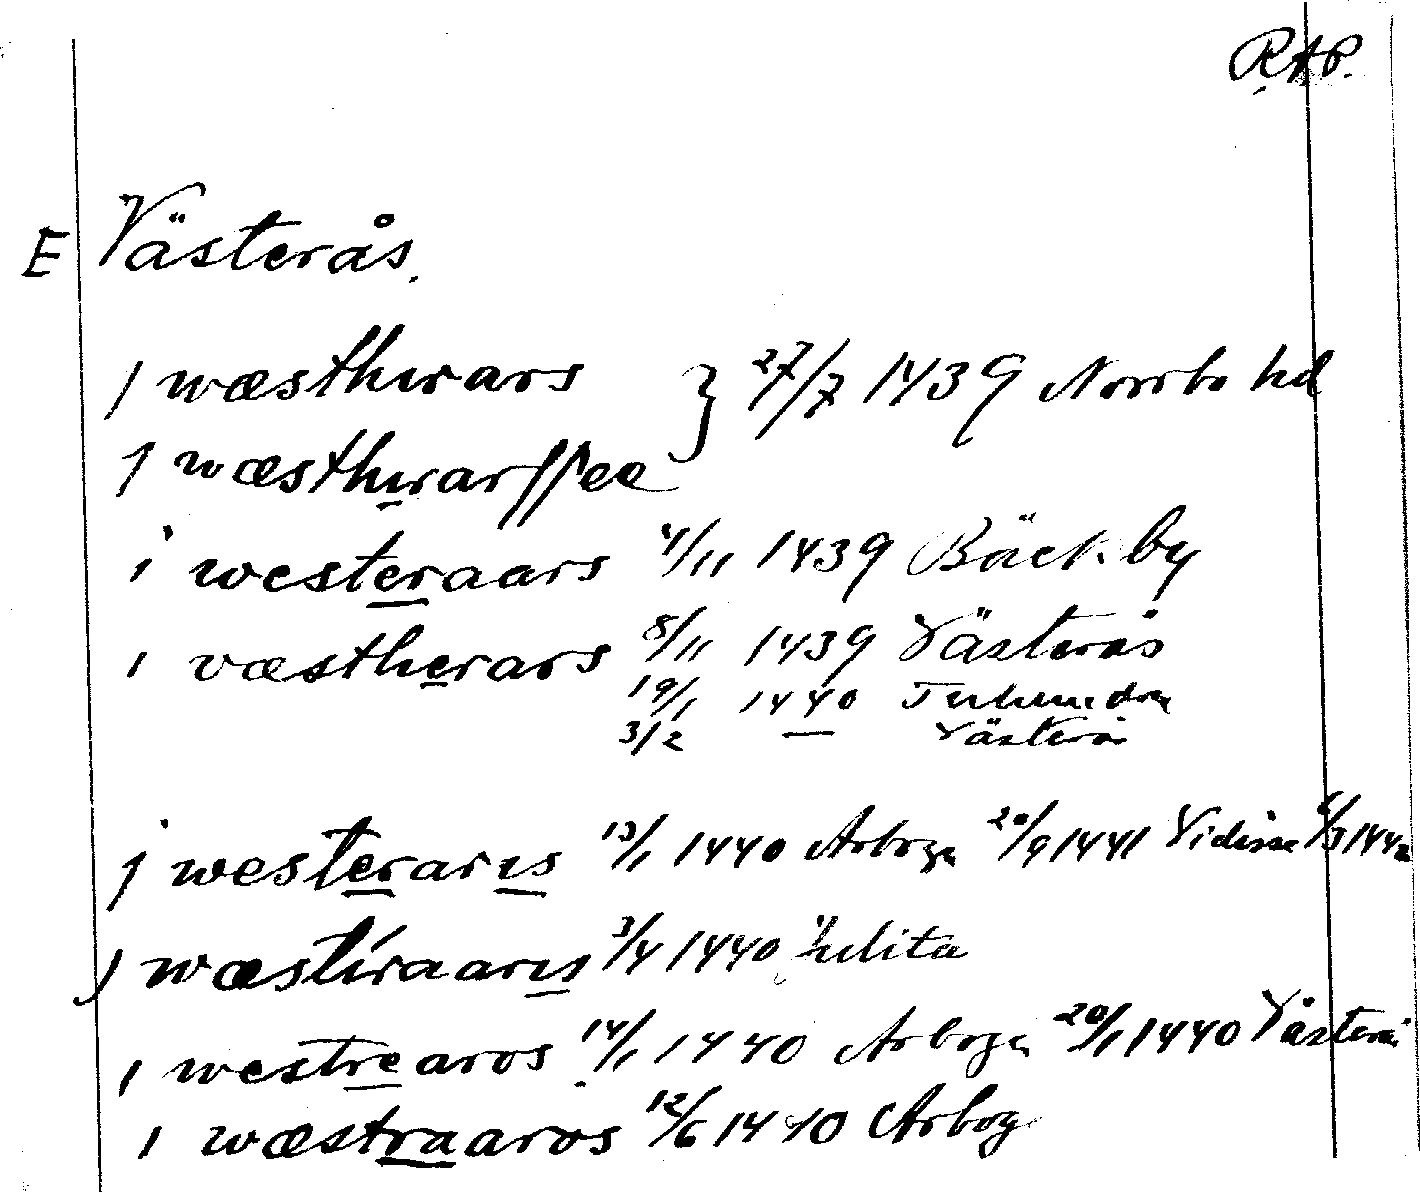 RAP.
E Västerås.
j wæsthirars } 27/7 1439 Norrbo hd
j wæsthirarssee
i westeraars 4/11 1439 Bäckby
i væstherars 8/11 1439 Västerås
19/1 1440
3/2 — Västerå
j westeraris 13/1 1440 Arboga 20/9 1441
j wæstiraaris 3/4 1440 Julita
i westrearos 14/1 1440 Arboga 20/1 1440 Västerå
i wæstraaros 12/6 1440 Arbog